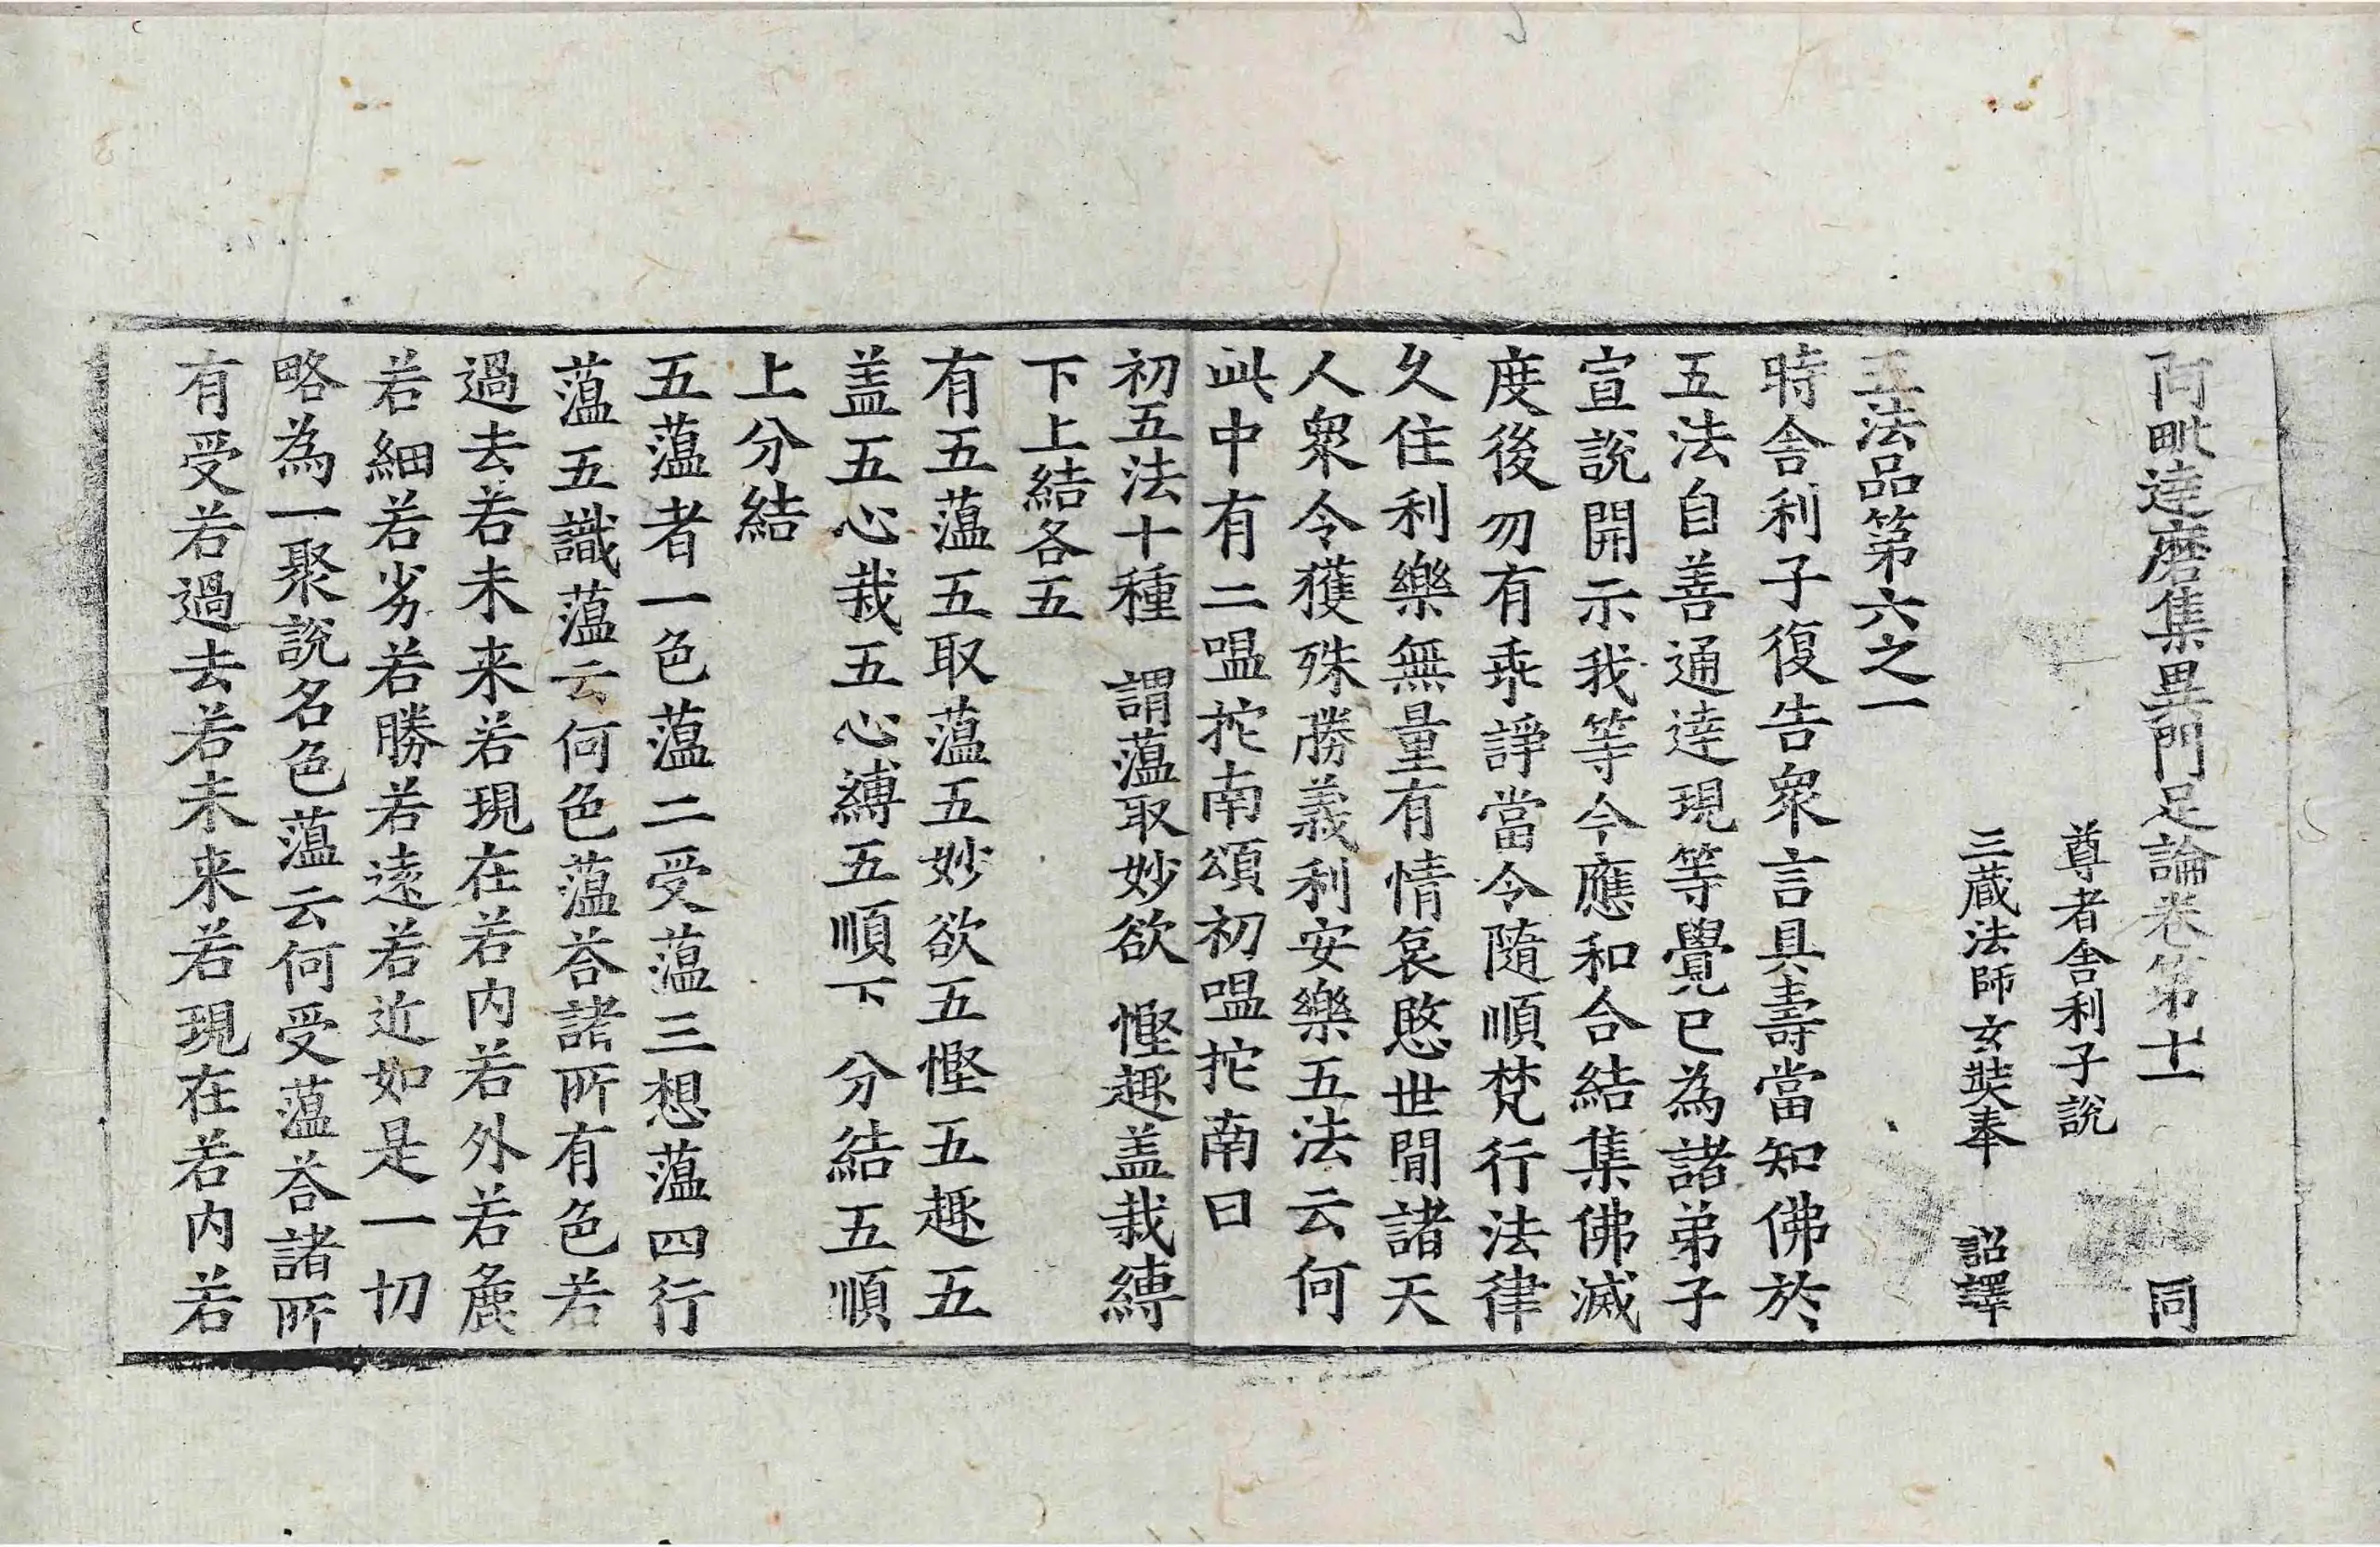 阿毗達磨集異門足論卷第十一 同
尊者舍利子說
三藏法師玄奘奉 詔譯
五法品第六之一
時舍利子復告衆言具壽當知佛於
五法自善通達現等覺已為諸弟子
宣說開示我等今應和合結集佛滅
度後勿有乖諍當令隨順梵行法律
久住利樂無量有情哀愍世間諸天
人衆令獲殊勝義利安樂五法云何
此中有二嗢拕南頌初嗢拕南曰
初五法十種 謂蘊取妙欲 慳趣盖栽縛
下上結各五
有五蘊五取蘊五妙欲五慳五趣五
盖五心栽五心縛五順下分結五順
上分結
五蘊者一色蘊二受蘊三想蘊四行
蘊五識蘊云何色蘊荅諸所有色若
過去若未来若現在若内若外若麁
若細若劣若勝若遠若近如是一切
略為一聚說名色蘊云何受蘊荅諸所
有受若過去若未来若現在若内若